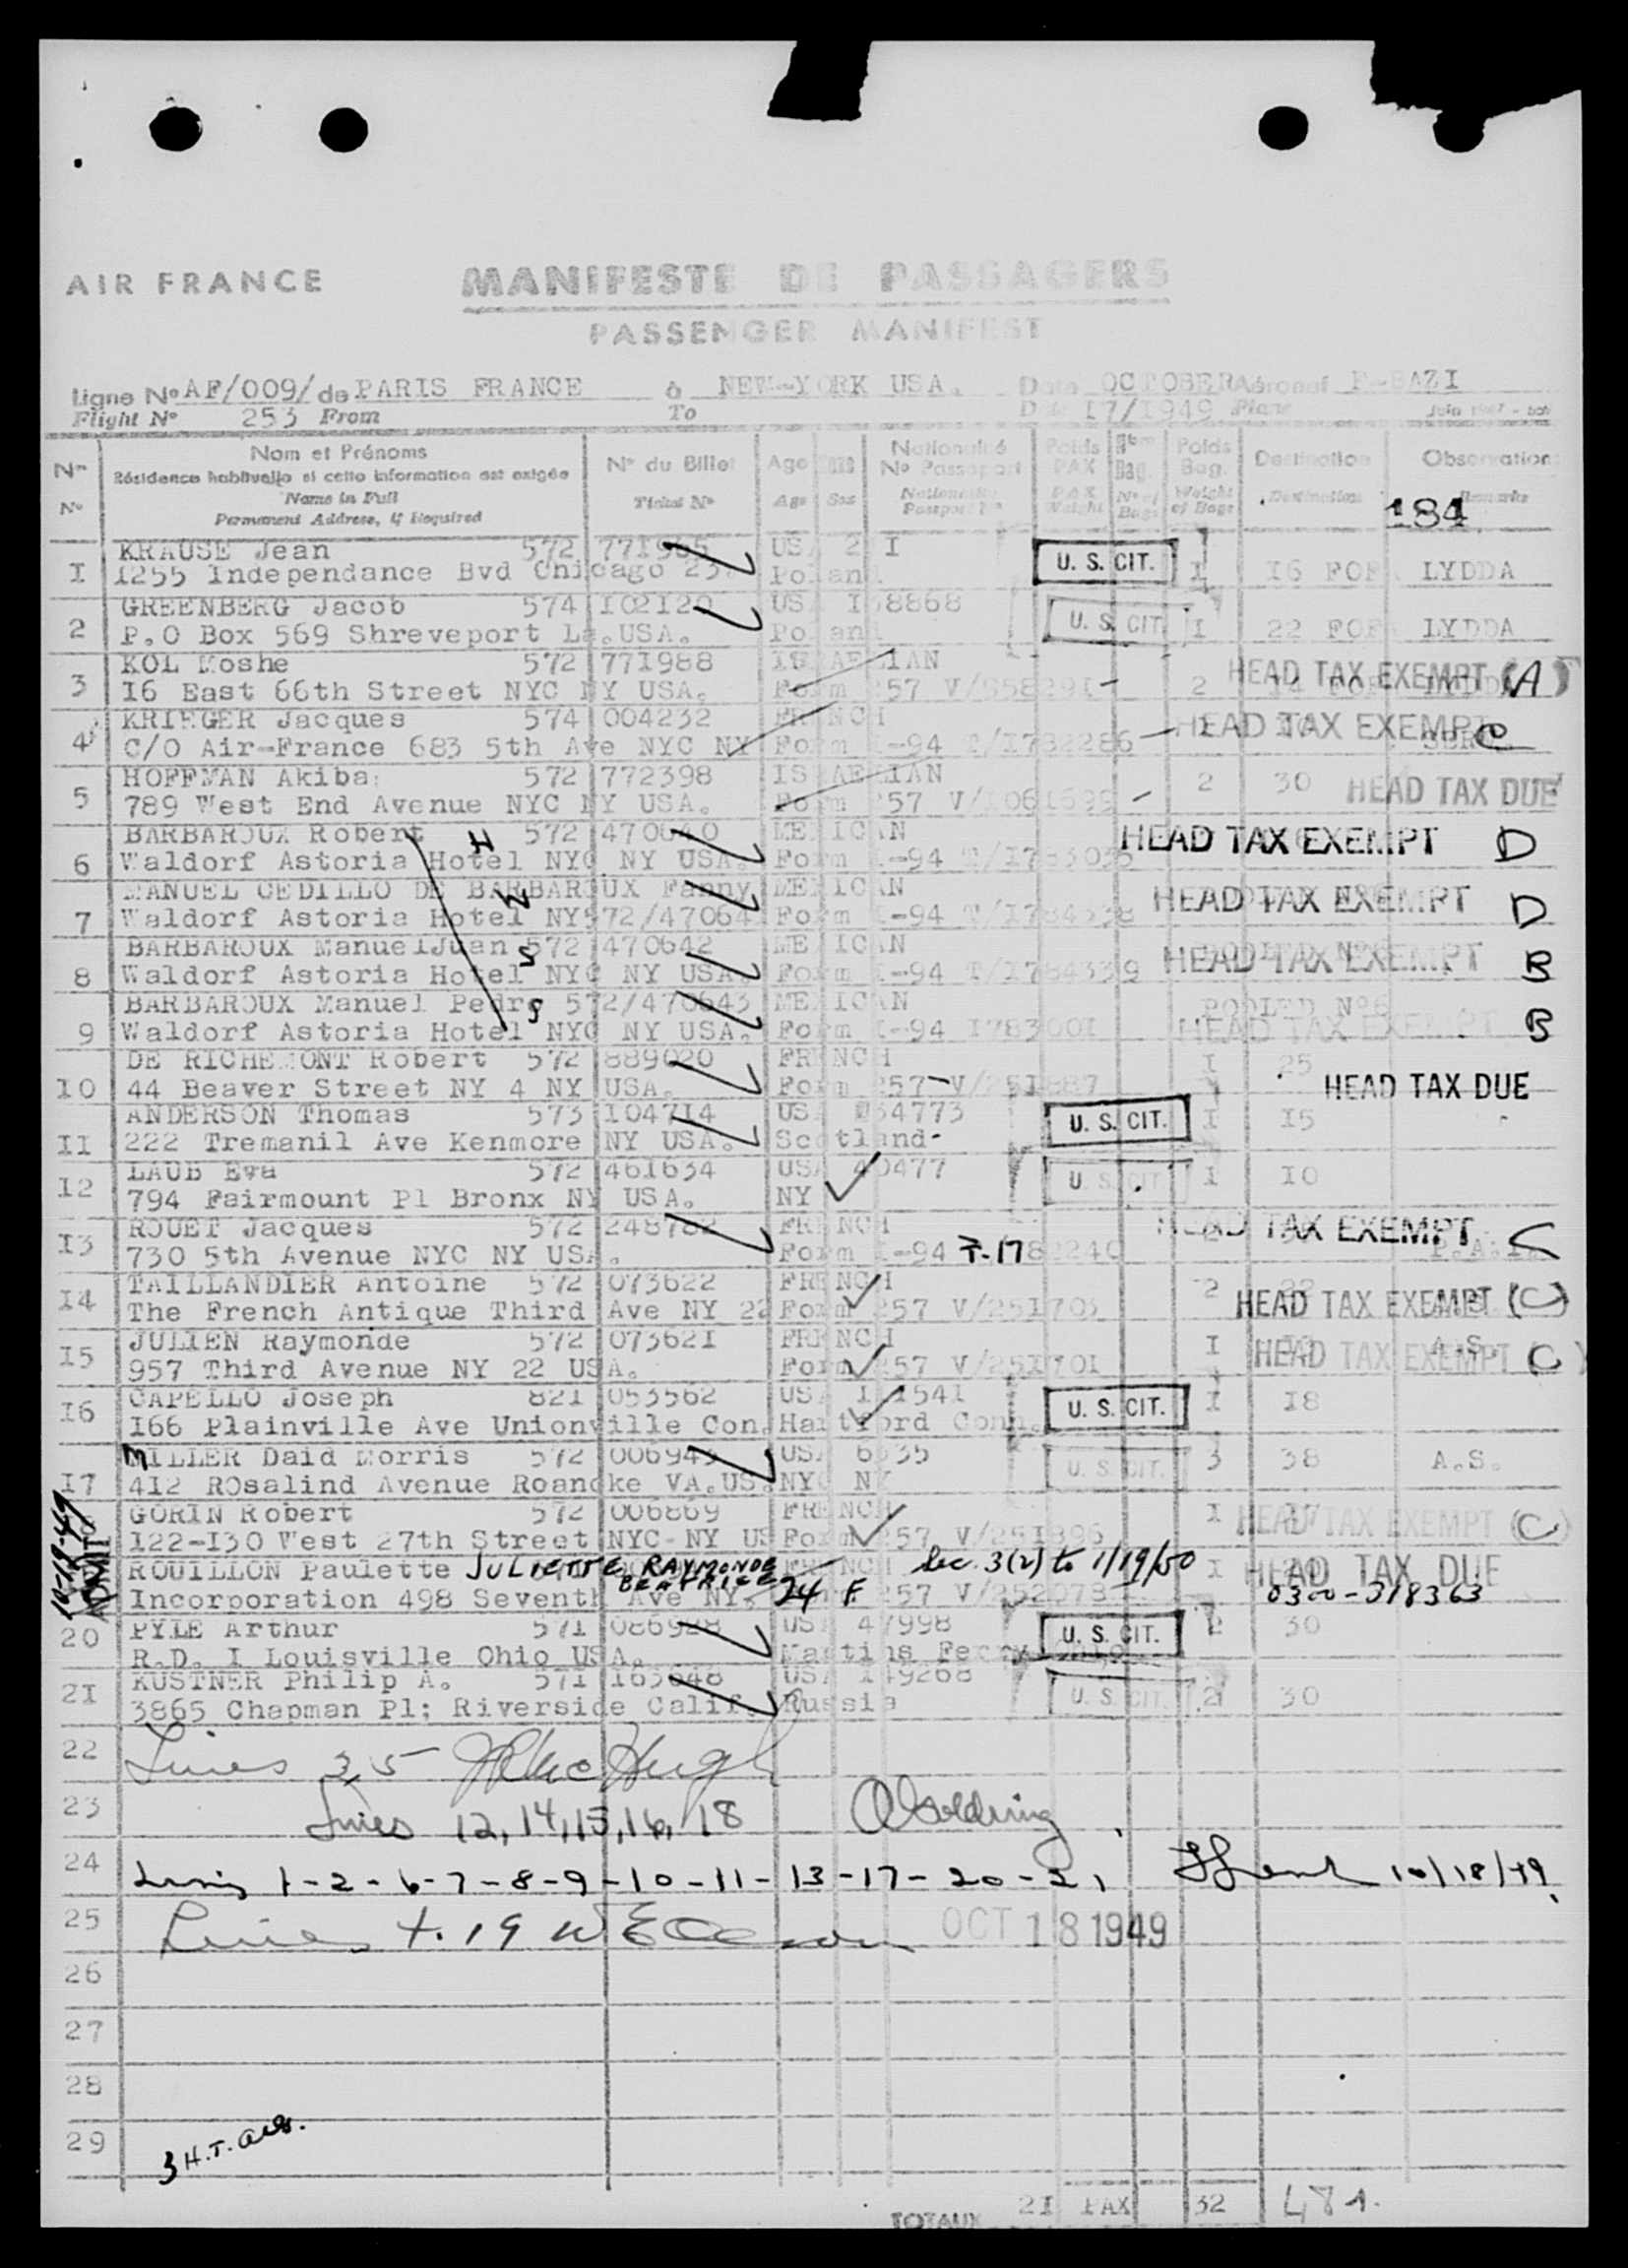 AIR FRANCE MANIFESTE DE PASSAGERS
PASSENGER MANIFEST
Ligne No AF/009/ de PARIS FRANCE à NEW-YORK USA. Date OCTOBER Aéronef F-BAZI
Flight No 253 From To Date 17/1949 Plane
Nom et Prénoms Nationalité Poids Nbre Poids
No Résidence habituelle si cette information est exigée No du Billet Age Sexe No Passeport PAX Bag. Bag. Destination Observations
No Name in Full Ticket No Age Sex Nationality PAX No of Weight Destination Remarks
Permanent Address, if Required Passport No Weight Bags of Bags 184
KRAUSE Jean 572 771965 USA 2 I U. S. CIT.
I 1255 Independance Bvd Chicago 23. Poland I 16 LYDDA
GREENBERG Jacob 574 102120 USA 8868 U. S. CIT.
2 P.O Box 569 Shreveport La. USA. Poland I 22 LYDDA
KOL Moshe 572 771988 ISRAELIAN HEAD TAX EXEMPT (A)
3 16 East 66th Street NYC NY USA. Form 257 V/958291 2
KRIEGER Jacques 574 004232 FRENCH HEAD TAX EXEMPT C
4 C/O Air-France 683 5th Ave NYC NY Form I-94 T/1782286
HOFFMAN Akiba 572 772398 ISRAELIAN 2 30 HEAD TAX DUE
5 789 West End Avenue NYC NY USA. Form 257
BARBAROUX Robert H 572 470640 MEXICAN HEAD TAX EXEMPT D
6 Waldorf Astoria Hotel NYC NY USA. Form I-94
MANUEL CEDILLO DE BARBAROUX Fanny MEXICAN HEAD TAX EXEMPT D
7 Waldorf Astoria Hotel NY 572/47064 Form I-94 T/1784338
BARBAROUX Manuel Juan S 572 470642 MEXICAN HEAD TAX EXEMPT B
8 Waldorf Astoria Hotel NYC NY USA. Form I-94 T/1784339
BARBAROUX Manuel Pedro S 572/470643 MEXICAN POOLED No6
9 Waldorf Astoria Hotel NYC NY USA. Form I-94 1783001 HEAD TAX EXEMPT B
DE RICHEMONT Robert 572 889020 FRENCH I 25
10 44 Beaver Street NY 4 NY USA. Form 257 V/251887 HEAD TAX DUE
ANDERSON Thomas 573 104714 USA 34773 U. S. CIT. I 15
11 222 Tremanil Ave Kenmore NY USA. Scotland
LAUB Eva 572 461634 USA 40477 U. S. CIT. I 10
12 794 Fairmount Pl Bronx NY USA. NY
ROUET Jacques 572 248782 FRENCH HEAD TAX EXEMPT C
13 730 5th Avenue NYC NY USA. Form I-94 T-1782240
TAILLANDIER Antoine 572 073622 FRENCH 2
14 The French Antique Third Ave NY 22 Form 257 V/251703 HEAD TAX EXEMPT (C)
JULIEN Raymonde 572 073621 FRENCH I A.S.
15 957 Third Avenue NY 22 USA. Form 257 V/251701 HEAD TAX EXEMPT (C)
CAPELLO Joseph 821 053562 USA 1541 U. S. CIT. I 18
16 166 Plainville Ave Unionville Con. Hartford Conn.
MILLER Daid Morris 572 006943 USA 6635 U. S. CIT. 3 38 A.S.
17 412 ROsalind Avenue Roanoke VA.US. NYC NY
GORIN Robert 572 006869 FRENCH I HEAD TAX EXEMPT (C)
122-130 West 27th Street NYC NY US Form 257 V/251896
10-19-49 ADMITD
ROUILLON Paulette JULIETTE RAYMONDE BEATRICE FRENCH Sec. 3(2) to 1/19/50 I HEAD TAX DUE
Incorporation 498 Seventh Ave NY. 24 F. 257 V/252078 0300-318363
PYLE Arthur 571 086928 USA 47998 U. S. CIT. 2 30
20 R.D. I Louisville Ohio USA. Martins Ferry Ohio
KUSTNER Philip A. 571 163648 USA 149268 U. S. CIT. 2 30
21 3865 Chapman Pl; Riverside Calif. Russia
22 Lines 3, 5 J McHugh
23 Lines 12, 14, 15, 16, 18 Goldring
24 Lines 1-2-6-7-8-9-10-11-13-17-20-21 10/18/49
25 Lines 4. 19 OCT 18 1949
26
27
28
29 3 H.T. ads.
TOTAUX 21 PAX 32 481.